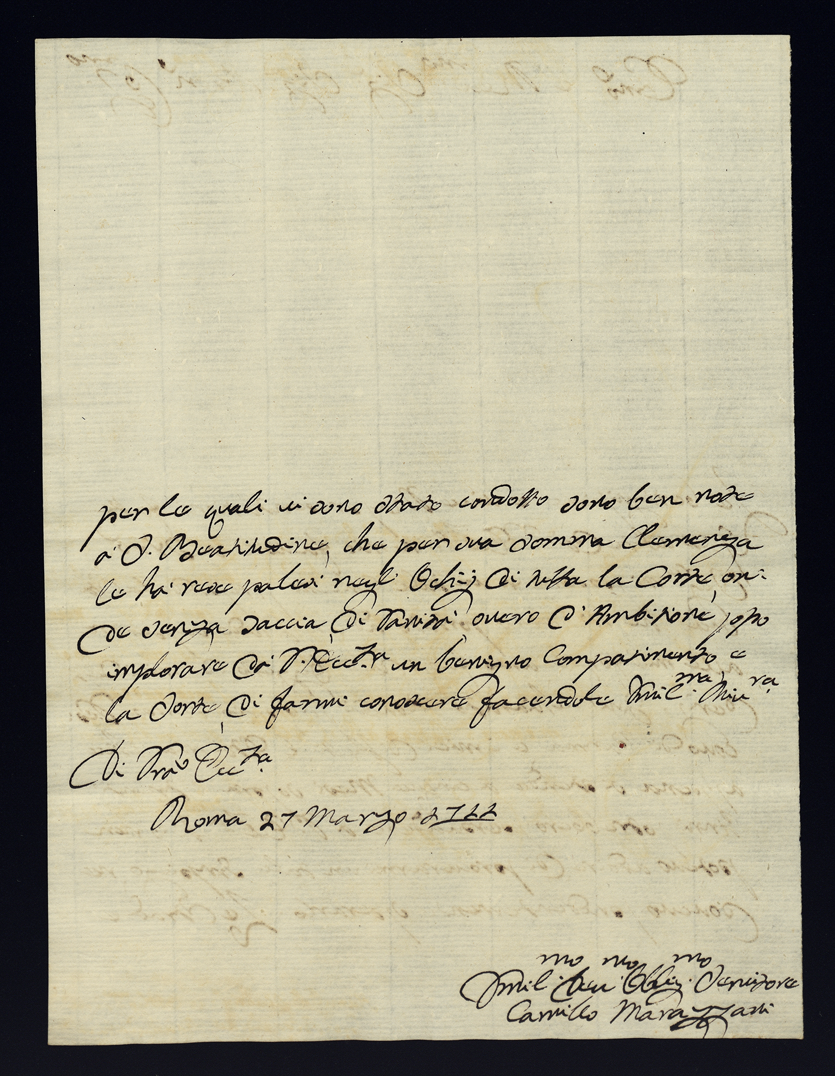 per le quali vi sono stato condotto sono ben note
a S. Beatitudine, che per sua somma Clemenza
le hà rese palesi negli Ochij di tutta la Corte, on-
de senza taccia di Vanità, overo di Ambitione, posso
implorare da V. Ecc.za un benigno Compatimento e
la Sorte, di farmi conoscere facendole Umil.ma River.za
Di Vra Ecc.za
Roma 27 Marzo 1722
Umil.mo Dev.mo Obblig.mo Servitore
Camillo Marazzani